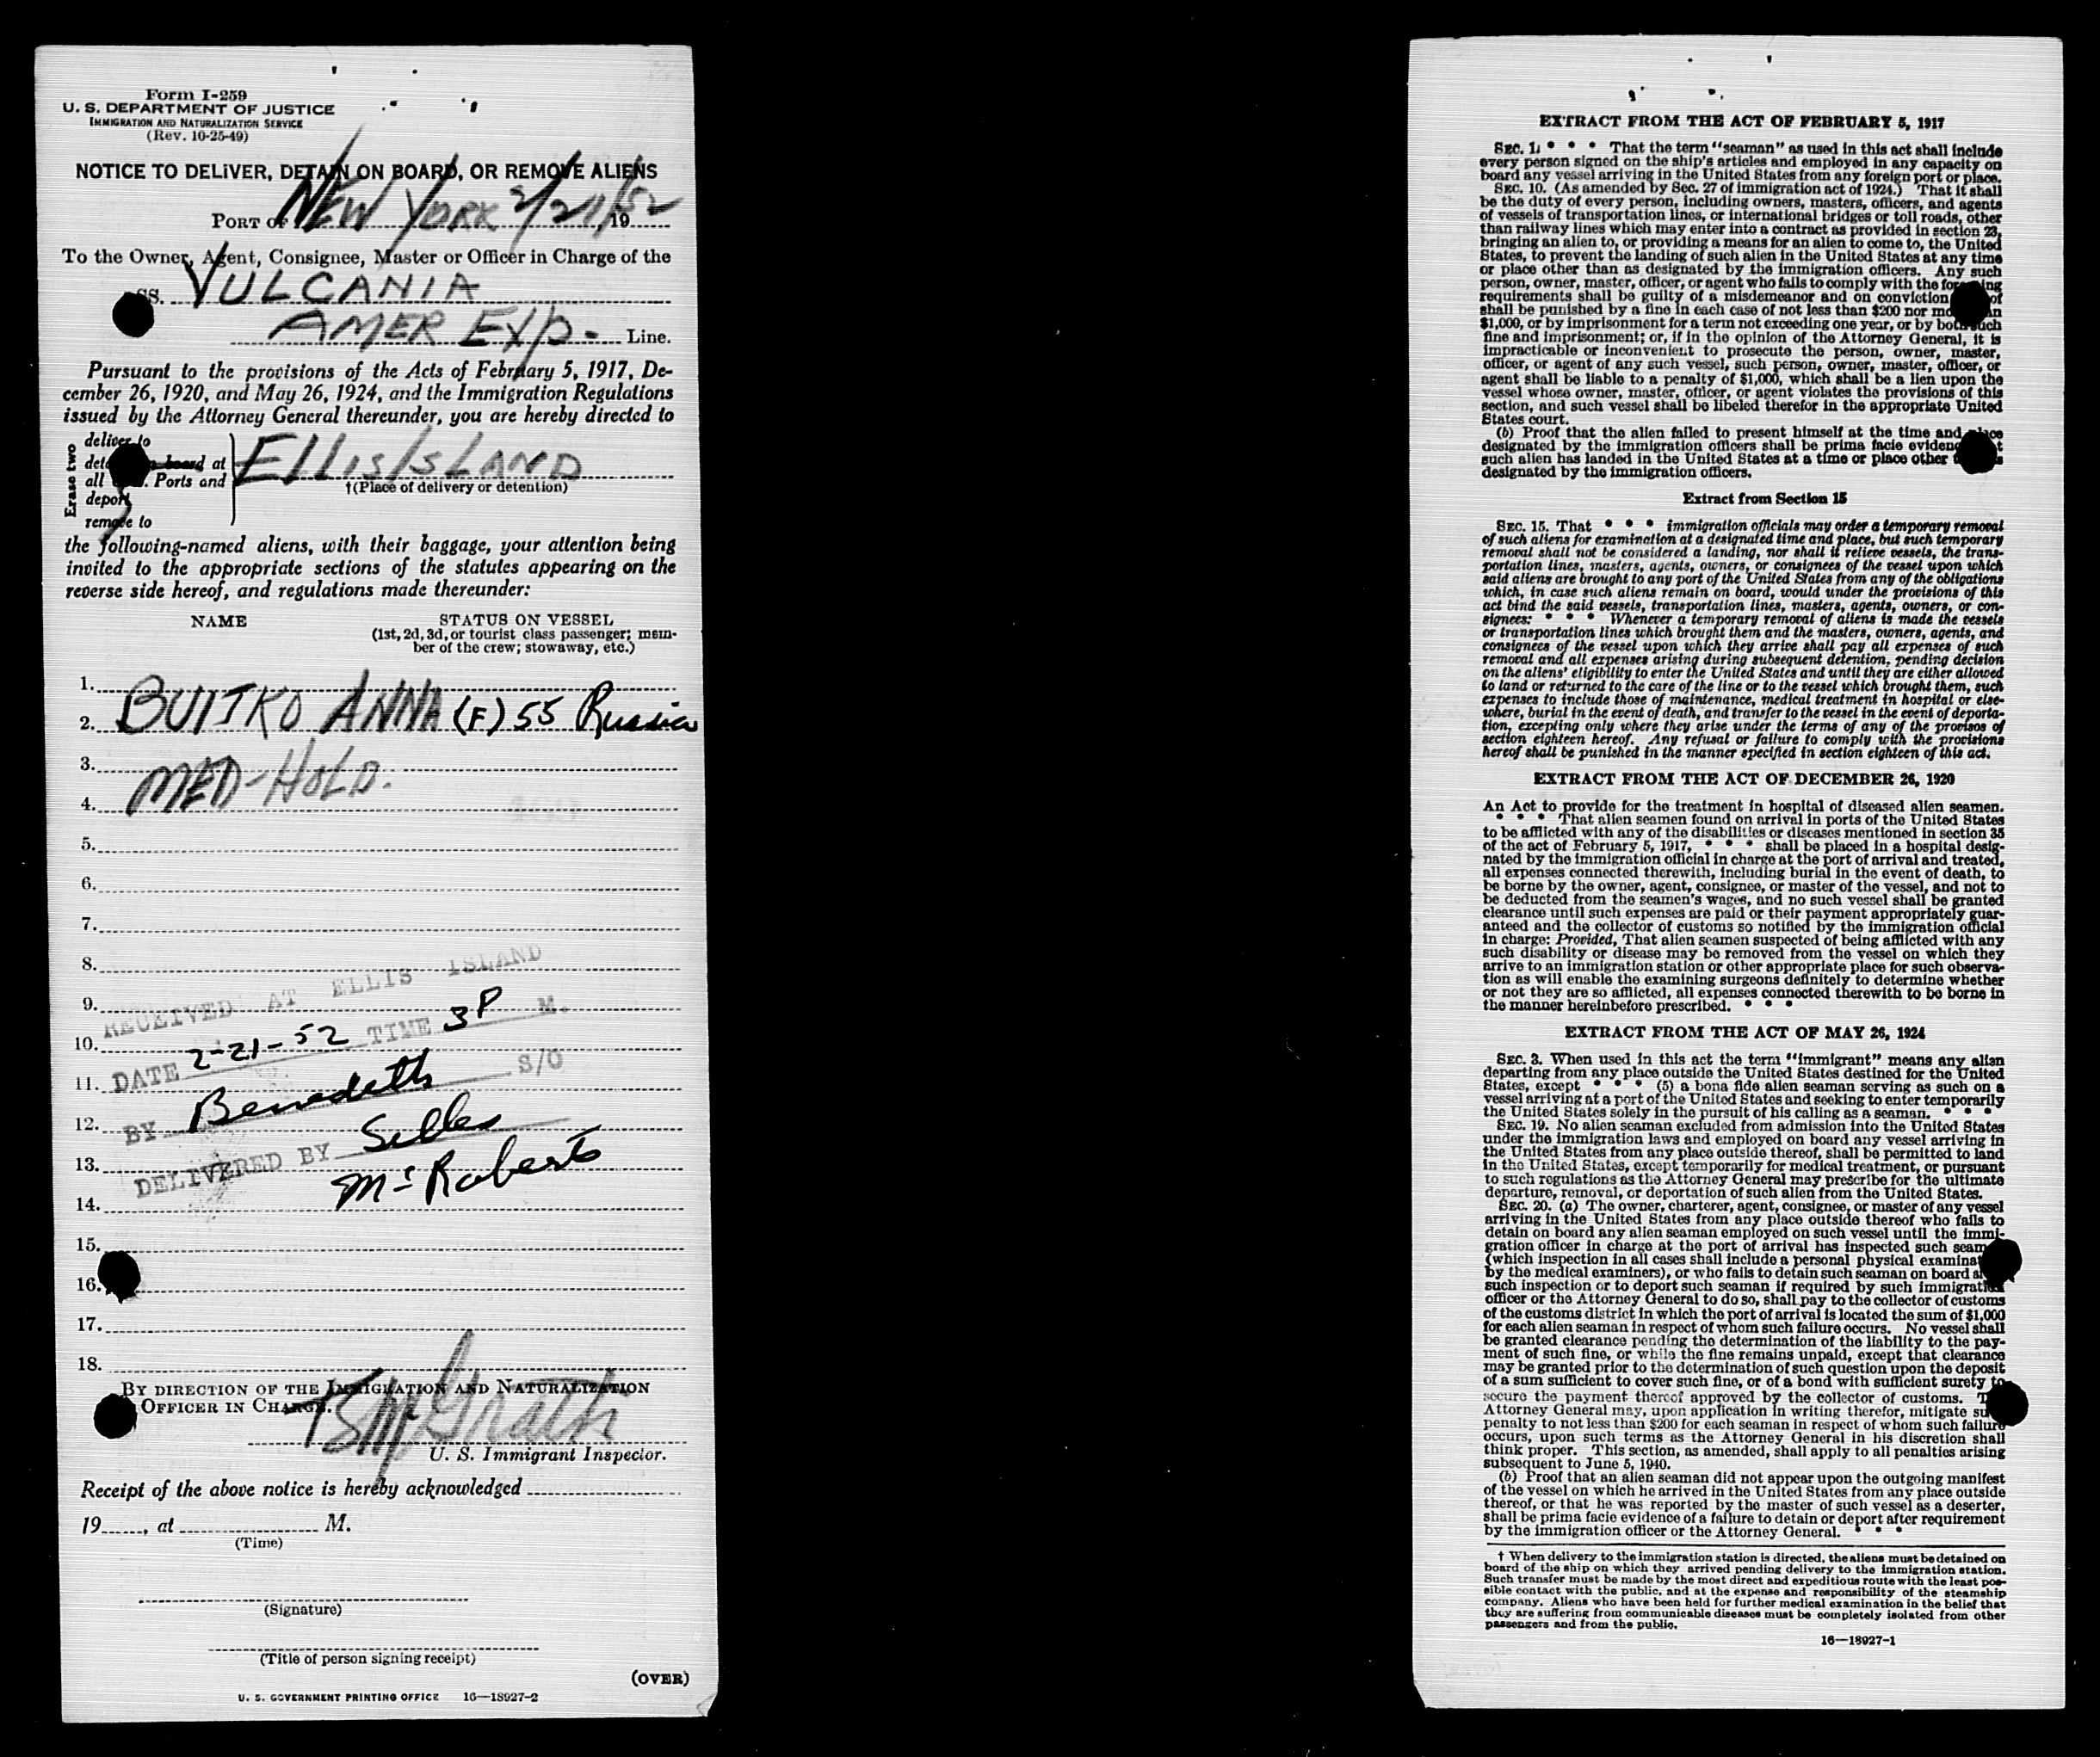 Form I-259
U. S. DEPARTMENT OF JUSTICE
IMMIGRATION AND NATURALIZATION SERVICE
(Rev. 10-25-49)
NOTICE TO DELIVER, DETAIN ON BOARD, OR REMOVE ALIENS
PORT OF NEW YORK 2/21/52, 19
To the Owner, Agent, Consignee, Master or Officer in Charge of the
SS. VULCANIA
AMER EXP- Line.
Pursuant to the provisions of the Acts of February 5, 1917, De-
cember 26, 1920, and May 26, 1924, and the Immigration Regulations
issued by the Attorney General thereunder, you are hereby directed to
Erase two
deliver to
board at
all Ports and
deport
remove to
ELLIS ISLAND
†(Place of delivery or detention)
the following-named aliens, with their baggage, your attention being
invited to the appropriate sections of the statutes appearing on the
reverse side hereof, and regulations made thereunder:
NAME STATUS ON VESSEL
(1st, 2d, 3d, or tourist class passenger; mem-
ber of the crew; stowaway, etc.)
1.
2. BUITKO ANNA (F) 55 Russia
3.
4. MED-HOLD.
5.
6.
7.
8.
9.
10.
11.
12.
13.
14.
15.
16.
17.
18.
RECEIVED AT ELLIS ISLAND
DATE 2-21-52 TIME 3P M.
BY S/O
DELIVERED BY
McRoberts
BY DIRECTION OF THE IMMIGRATION AND NATURALIZATION
OFFICER IN CHARGE.
McGrath
U. S. Immigrant Inspector.
Receipt of the above notice is hereby acknowledged
19......, at M.
(Time)
(Signature)
(Title of person signing receipt)
(OVER)
U. S. GOVERNMENT PRINTING OFFICE 16—18927-2
EXTRACT FROM THE ACT OF FEBRUARY 5, 1917
SEC. 1. * * * That the term "seaman" as used in this act shall include
every person signed on the ship's articles and employed in any capacity on
board any vessel arriving in the United States from any foreign port or place.
SEC. 10. (As amended by Sec. 27 of immigration act of 1924.) That it shall
be the duty of every person, including owners, masters, officers, and agents
of vessels of transportation lines, or international bridges or toll roads, other
than railway lines which may enter into a contract as provided in section 23,
bringing an alien to, or providing a means for an alien to come to, the United
States, to prevent the landing of such alien in the United States at any time
or place other than as designated by the immigration officers. Any such
person, owner, master, officer, or agent who fails to comply with the foregoing
requirements shall be guilty of a misdemeanor and on conviction of
shall be punished by a fine in each case of not less than $200 nor
$1,000, or by imprisonment for a term not exceeding one year, or by both such
fine and imprisonment; or, if in the opinion of the Attorney General, it is
impracticable or inconvenient to prosecute the person, owner, master,
officer, or agent of any such vessel, such person, owner, master, officer, or
agent shall be liable to a penalty of $1,000, which shall be a lien upon the
vessel whose owner, master, officer, or agent violates the provisions of this
section, and such vessel shall be libeled therefor in the appropriate United
States court.
(b) Proof that the alien failed to present himself at the time and place
designated by the immigration officers shall be prima facie evidence
such alien has landed in the United States at a time or place other
designated by the immigration officers.
Extract from Section 15
SEC. 15. That * * * immigration officials may order a temporary removal
of such aliens for examination at a designated time and place, but such temporary
removal shall not be considered a landing, nor shall it relieve vessels, the trans-
portation lines, masters, agents, owners, or consignees of the vessel upon which
said aliens are brought to any port of the United States from any of the obligations
which, in case such aliens remain on board, would under the provisions of this
act bind the said vessels, transportation lines, masters, agents, owners, or con-
signees: * * * Whenever a temporary removal of aliens is made the vessels
or transportation lines which brought them and the masters, owners, agents, and
consignees of the vessel upon which they arrive shall pay all expenses of such
removal and all expenses arising during subsequent detention, pending decision
on the aliens' eligibility to enter the United States and until they are either allowed
to land or returned to the care of the line or to the vessel which brought them, such
expenses to include those of maintenance, medical treatment in hospital or else-
where, burial in the event of death, and transfer to the vessel in the event of deporta-
tion, excepting only where they arise under the terms of any of the provisos of
section eighteen hereof. Any refusal or failure to comply with the provisions
hereof shall be punished in the manner specified in section eighteen of this act.
EXTRACT FROM THE ACT OF DECEMBER 26, 1920
An Act to provide for the treatment in hospital of diseased alien seamen.
* * * That alien seamen found on arrival in ports of the United States
to be afflicted with any of the disabilities or diseases mentioned in section 35
of the act of February 5, 1917, * * * shall be placed in a hospital desig-
nated by the immigration official in charge at the port of arrival and treated,
all expenses connected therewith, including burial in the event of death, to
be borne by the owner, agent, consignee, or master of the vessel, and not to
be deducted from the seamen's wages, and no such vessel shall be granted
clearance until such expenses are paid or their payment appropriately guar-
anteed and the collector of customs so notified by the immigration official
in charge: Provided, That alien seamen suspected of being afflicted with any
such disability or disease may be removed from the vessel on which they
arrive to an immigration station or other appropriate place for such observa-
tion as will enable the examining surgeons definitely to determine whether
or not they are so afflicted, all expenses connected therewith to be borne in
the manner hereinbefore prescribed. * * *
EXTRACT FROM THE ACT OF MAY 26, 1924
SEC. 3. When used in this act the term "immigrant" means any alian
departing from any place outside the United States destined for the United
States, except * * * (5) a bona fide alien seaman serving as such on a
vessel arriving at a port of the United States and seeking to enter temporarily
the United States solely in the pursuit of his calling as a seaman. * * *
SEC. 19. No alien seaman excluded from admission into the United States
under the immigration laws and employed on board any vessel arriving in
the United States from any place outside thereof, shall be permitted to land
in the United States, except temporarily for medical treatment, or pursuant
to such regulations as the Attorney General may prescribe for the ultimate
departure, removal, or deportation of such alien from the United States.
SEC. 20. (a) The owner, charterer, agent, consignee, or master of any vessel
arriving in the United States from any place outside thereof who fails to
detain on board any alien seaman employed on such vessel until the immi-
gration officer in charge at the port of arrival has inspected such seaman
(which inspection in all cases shall include a personal physical examination
by the medical examiners), or who fails to detain such seaman on board
such inspection or to deport such seaman if required by such immigration
officer or the Attorney General to do so, shall pay to the collector of customs
of the customs district in which the port of arrival is located the sum of $1,000
for each alien seaman in respect of whom such failure occurs. No vessel shall
be granted clearance pending the determination of the liability to the pay-
ment of such fine, or while the fine remains unpaid, except that clearance
may be granted prior to the determination of such question upon the deposit
of a sum sufficient to cover such fine, or of a bond with sufficient surety to
secure the payment thereof approved by the collector of customs. The
Attorney General may, upon application in writing therefor, mitigate such
penalty to not less than $200 for each seaman in respect of whom such failure
occurs, upon such terms as the Attorney General in his discretion shall
think proper. This section, as amended, shall apply to all penalties arising
subsequent to June 5, 1940.
(b) Proof that an alien seaman did not appear upon the outgoing manifest
of the vessel on which he arrived in the United States from any place outside
thereof, or that he was reported by the master of such vessel as a deserter,
shall be prima facie evidence of a failure to detain or deport after requirement
by the immigration officer or the Attorney General. * * *
† When delivery to the immigration station is directed, the aliens must be detained on
board of the ship on which they arrived pending delivery to the immigration station.
Such transfer must be made by the most direct and expeditious route with the least pos-
sible contact with the public, and at the expense and responsibility of the steamship
company. Aliens who have been held for further medical examination in the belief that
they are suffering from communicable diseases must be completely isolated from other
passengers and from the public.
16—18927-1